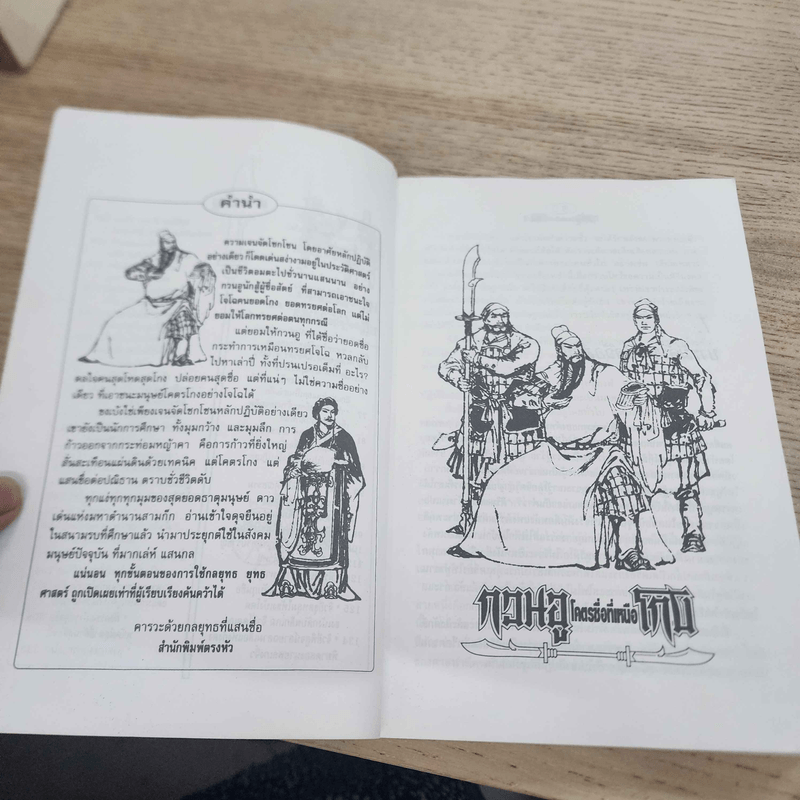 คำนำ
ความเจนจัดโชกโชน โดยอาศัยหลักปฏิบัติ
อย่างเดียว ก็โดดเด่นสง่างามอยู่ในประวัติศาสตร์
เป็นชีวิตอมตะไปชั่วนานแสนนาน อย่าง
กวนอูนักสู้ผู้ซื่อสัตย์ ที่สามารถเอาชนะใจ
โจโฉคนยอดโกง ยอดทรยศต่อโลก แต่ไม่
ยอมให้โลกทรยศต่อตนทุกกรณี
แต่ยอมให้กวนอู ที่ได้ชื่อว่ายอดซื่อ
กระทำการเหมือนทรยศโจโฉ หวลกลับ
ไปหาเล่าปี่ ทั้งที่ปรนเปรอเต็มที่ อะไร?
ดลใจคนสุดโหดสุดโกง ปล่อยคนสุดซื่อ แต่ที่แน่ๆ ไม่ใช่ความซื่ออย่าง
เดียว ที่เอาชนะมนุษย์โคตรโกงอย่างโจโฉได้
ขงเบ้งใช่เพียงเจนจัดโชกโชนหลักปฏิบัติอย่างเดียว
เขายังเป็นนักการศึกษา ทั้งมุมกว้าง และมุมลึก การ
ก้าวออกจากกระท่อมหญ้าคา คือการก้าวที่ยิ่งใหญ่
สั่นสะเทือนแผ่นดินด้วยเทคนิค แต่โคตรโกง แต่
แสนซื่อต่อปณิธาน ตราบชั่วชีวิตดับ
ทุกแง่ทุกทุกมุมของสุดยอดธาตุมนุษย์ ดาว
เด่นแห่งมหาตำนานสามก๊ก อ่านเข้าใจดุจยืนอยู่
ในสนามรบที่ศึกษาแล้ว นำมาประยุกต์ใช้ในสังคม
มนุษย์ปัจจุบัน ที่มากเล่ห์ แสนกล
แน่นอน ทุกขั้นตอนของการใช้กลยุทธ ยุทธ
ศาสตร์ ถูกเปิดเผยเท่าที่ผู้เรียบเรียงค้นคว้าได้
คารวะด้วยกลยุทธที่แสนซื่อ
สำนักพิมพ์ตรงหัว
กวนอู โคตรซื่อที่เหนือ โกง